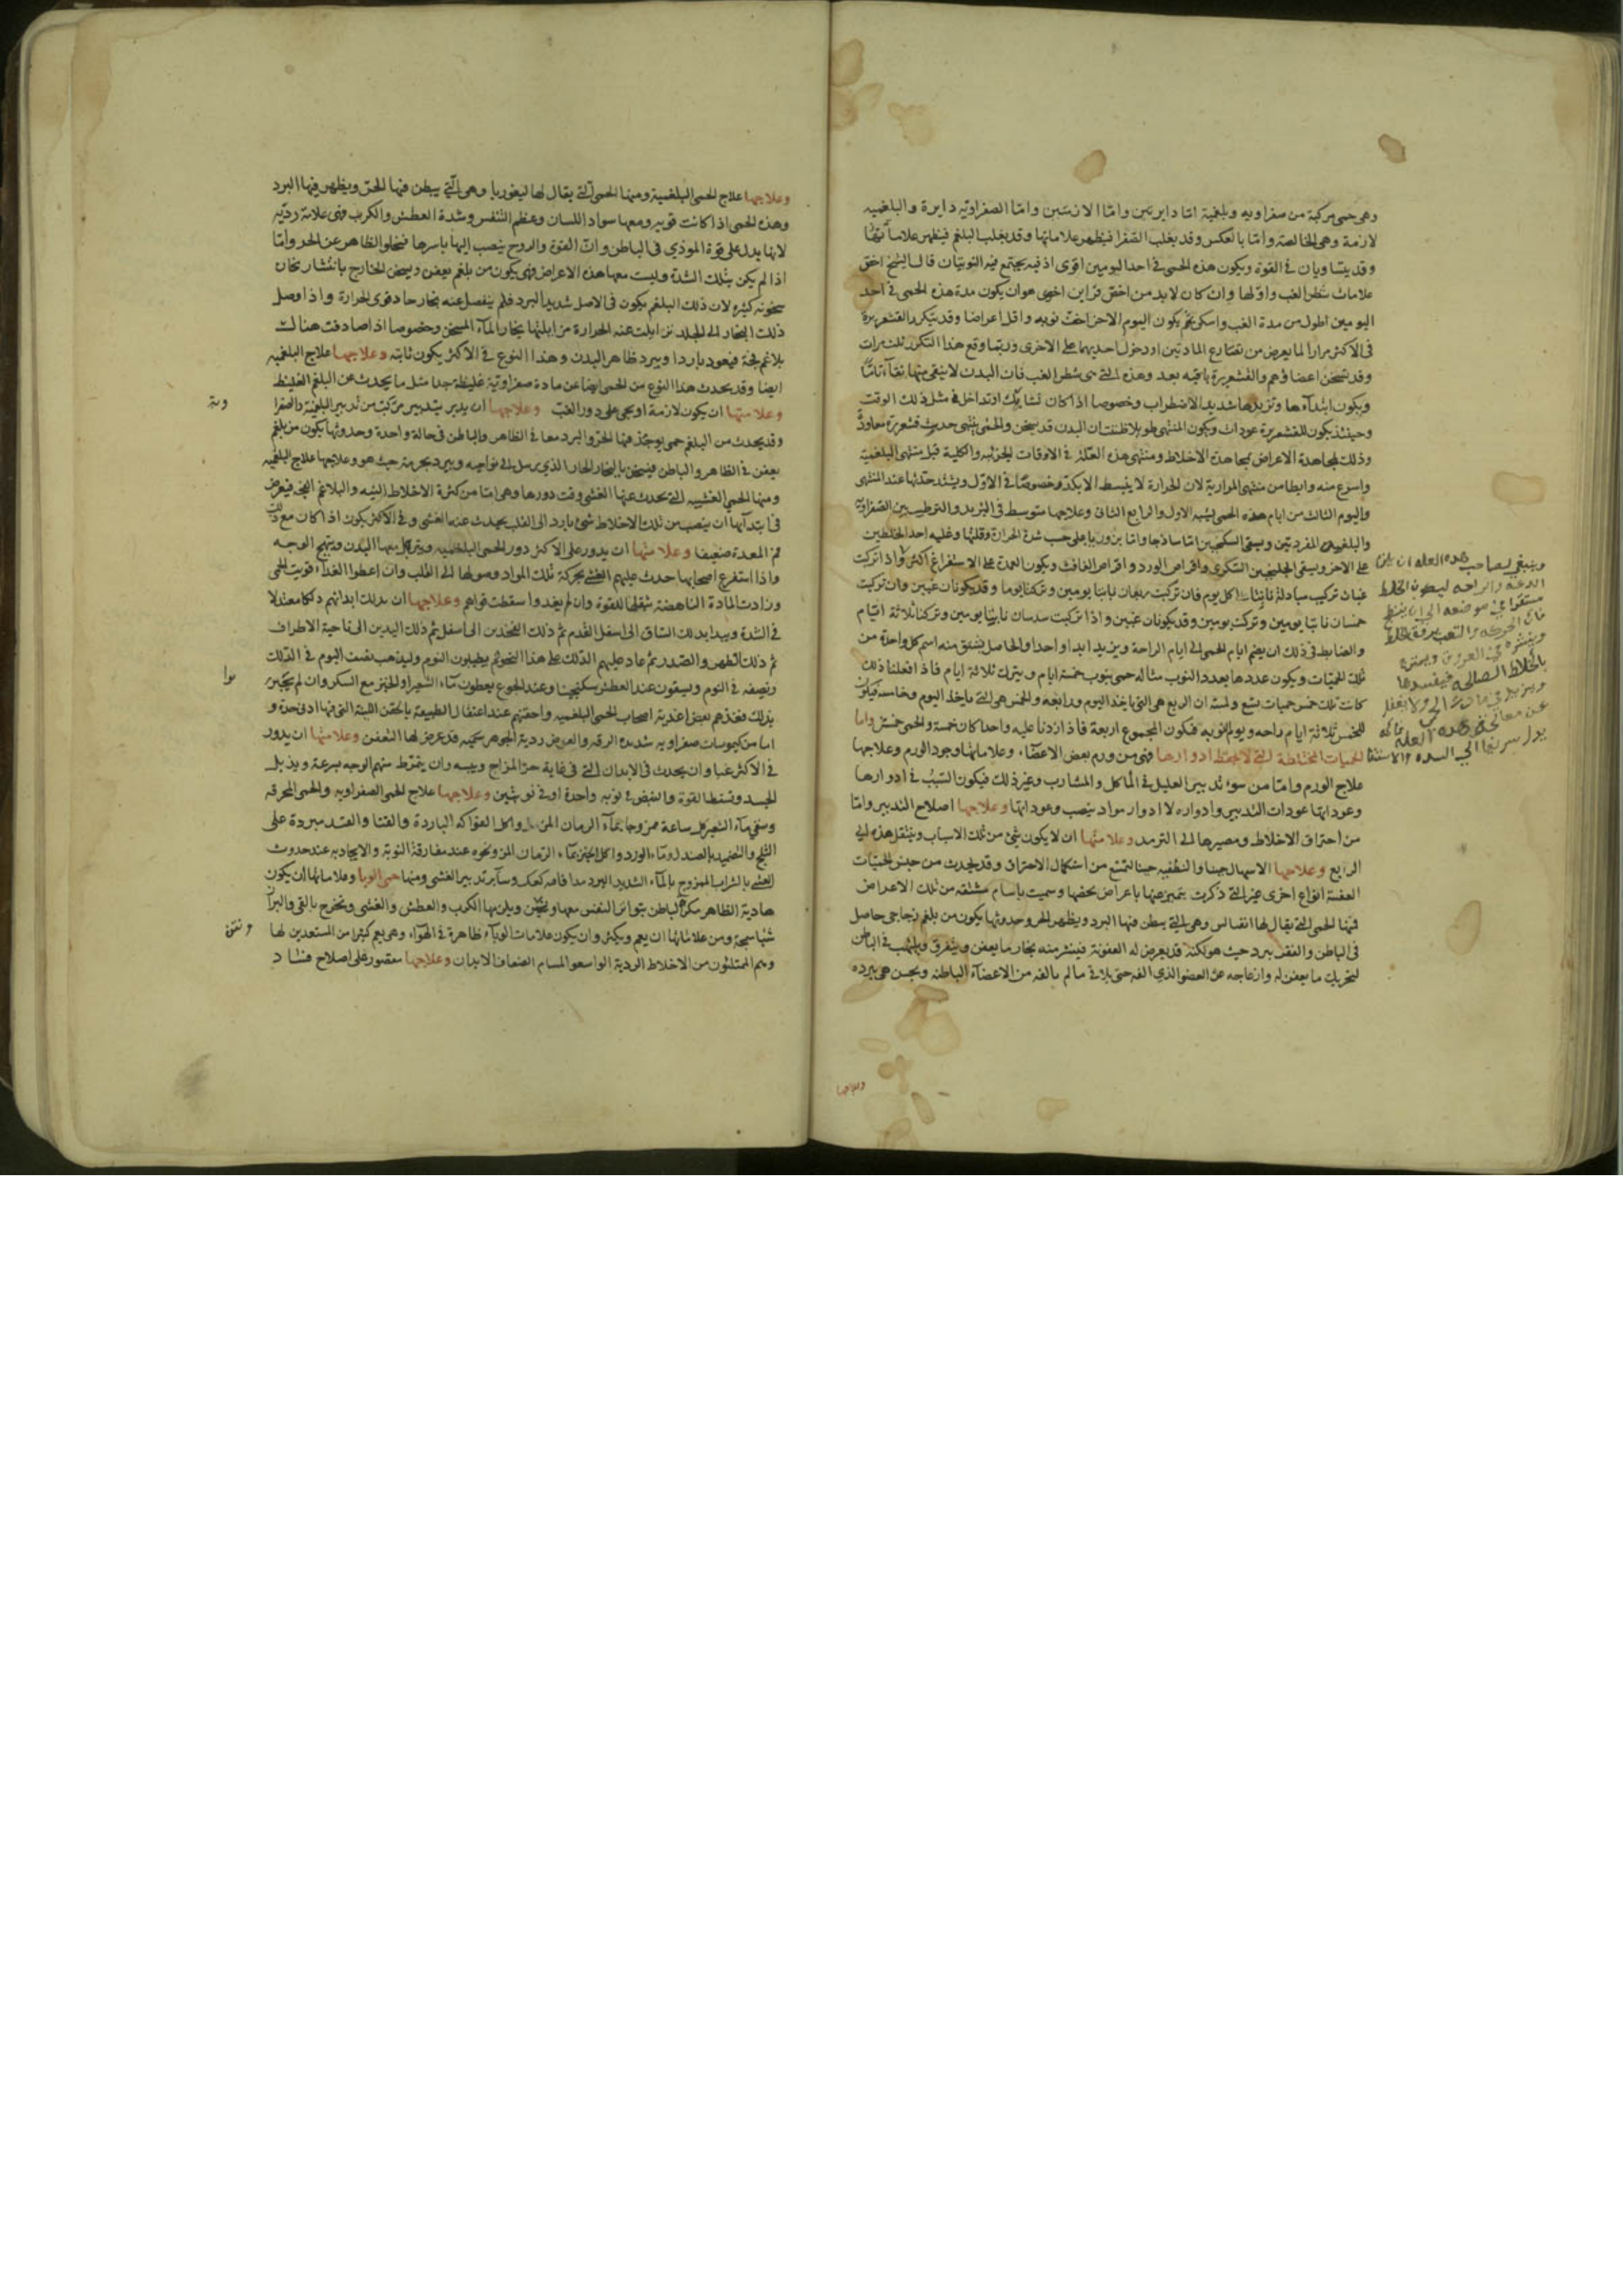 وهى حمى مركبة من صفراويه وبلغمية امّا دايرتين وامّا لازمتين وامّا الصفراويه دايرة والبلغميه
لازمة وهى الخالصة وامّا بالعكس وقد يغلب الصفرا فيظهر علاماتها وقد يغلب البلغم فيظهر علاماته
وقد يتساويان فى القوة ويكون هذه الحمى فى احد اليومين اقوى اذ فيه يجتمع فيه النوبتان قال الشيخ اخق
علامات شطر الغب واولها وان كان لابد من اخق قراين اخرى هو ان يكون مدة هذه الحمى فى احد
اليومين اطول من مدة الغب واسكن ثم يكون اليوم الاخر اخف نوبه واقل اعراضا وقد يتكرر القشعريرة
فى الاكثر مرارا لما يعرض من تصارع المادتين او دخول احديهما على الاخرى وربما وقع هذا التكرر ثلث مرات
وقد تسخن اعضاؤهم والقشعريرة باقيه بعد وهذه التى هى شطر الغب فان البدن لا ينقى منها نقآء تامًّا
ويكون ابتدآءها وتزيدها شديد الاضطراب وخصوصا اذا كان تشابك او تداخل فى مثل ذلك الوقت
وحينئذ يكون للقشعريرة عودات ويكون المنتهى طويلا ظننت ان البدن قد سخن والحمى ينتهى حديث قشعريرة معاودة
وذلك لمجاهدة الاعراض لمجاهدة الاخلاط ومنتهى هذه العلة فى الاوقات الجزئيه والكلية قبل منتهى البلغمية
واسرع منه وابطا من منتهى المرارية لان الحرارة لا ينبسط الا بكدّ وخصوصًا فى الاوّل ويشتد حدّتها عند المنتهى
واليوم الثالث من ايام هذه الحمى يشبه الاول والرابع الثانى وعلاجها متوسط فى التبريد والترطيب بين الصفراوية
والبلغميه المفردتين ويسقى السكنجبين امّا ساذجا وامّا بزوريا على حسب شدة الحرارة وقلتها وغلبه احد الخلطين
على الاخر ويسقى الجلنجبين السكرى واقراص الورد واقراص الغافث ويكون العمدة على الاستفراغ اكثر واذا تركبت
غبان تركيب مبادلة نابتا كل يوم فان تركبت ربعان نابتا يومين وتركتا يوما وقد يكونان غبين وان تركبت
خمسان نابتا يومين وتركت يومين وقد يكونان غبين واذا تركبت سدسان نابتا يومين وتركتا ثلاثة ايام
والضابط فى ذلك ان يضم ايام الحمى الى ايام الراحة ويزيد ابدا واحدا والحاصل يشتق منه اسم كل واحدة من
تلك الحميات ويكون عددها بعدد النوب مثاله حمى ينوب خمسة ايام ويترك ثلاثة ايام فاذا فعلنا ذلك
كانت تلك خمس حميات
للخمس ثلاثة ايام راحه ويوم النوبه فيكون المجموع اربعة فاذا زدنا عليه واحدا كان خمسة والحمى خمس واما
الحميات المختلطة التى لا يحفظ ادوارها فهى من ورم بعض الاعضاء وعلاماتها وجود الورم وعلاجها
علاج الورم وامّا من سوء تدبير العليل فى المآكل والمشارب وغير ذلك فيكون السبب فى ادوارها
وعوداتها عودات التدبير وادواره لا ادوار مواد ينصب وعوداتها وعلاجها اصلاح التدبير وامّا
من احتراق الاخلاط ومصيرها الى الترمد وعلامتها ان لا يكون شئ من تلك الاسباب وينتقل هذه الى
الرابع وعلاجها الاسهال حينا والتطفيه حينا لتمنع من استكمال الاحتراق وقد يحدث من جنس الحميّات
العفنة انواع اخرى غير التى ذكرت يتميز عنها باعراض يخصها وسميت باسام مشتقه من تلك الاعراض
فمنها الحمى التى يقال لها انفيالس وهى التى يبطن فيها البرد ويظهر الحر وحدوثها يكون من بلغم زجاجى حاصل
فى الباطن والقعر يبرد حيث هو لكنه قد يعرض له العفونة فينتشر منه بخار ما يعفن ويتفرق ويلتهب فى الباطن
لتحريك ما يعفن له وازعاجه عن العضو الذى الفه حتى يلاقى ما لم يالفه من الاعضآء الباطنه ويحسّ هى ببرده
وينبغى لصاحب هذه العله ان يلزم
الدعة والراحه ليكون الخلط
مستقرا فى موضعه الى ان ينضج
فان الحركه والتعب يرقق الخلط
وينشره فى العروق ويمتزج
بالخلاط الصالحه فيفسدها
ويزيد فى مادة الحمى ولا يغفل
وعلاجها
وعلاجها علاج الحمى البلغمية ومنها الحمى التى يقال لها ليغوريا وهى الّتى يبطن فيها الحرّ ويظهر فيها البرد
وهذه الحمى اذا كانت قويه ومعها سواد اللسان وعظم التنفس وشدة العطش والكرب فهى علامة رديّه
لانها يدل على قوة الموذى فى الباطن وانّ القوة والروح ينصب اليها باسرها فيخلو الظاهر عن الحر وامّا
اذا لم يكن بتلك الشدة وليست معها هذه الاعراض فهى يكون من بلغم يعفن ويسخن الخارج بانتشار بخار
سخونه كثيره لان ذلك البلغم يكون فى الاصل شديد البرد فلم ينفصل عنه بخار حاد قوى الحرارة واذا وصل
ذلك البخار الى الجلد زايلت عنه الحرارة مزايلتها بخار المآء المسخن وخصوصا اذا صادفت هناك
بلاغم فجة فيعود باردا ويبرد ظاهر البدن وهذا النوع فى الاكثر يكون ثابته وعلاجها علاج البلغميه
ايضا وقد يحدث هذا النوع من الحمى ايضا عن مادة صفراوية غليظة جدا مثل ما يحدث عن البلغم الغليظ
وعلامتها ان يكون لازمة او يجى على دور الغبّ وعلاجها ان يدبر بتدبير مركب من تدبير البلغميّة والصفرا
وقد يحدث من البلغم حمى يوجد فيها الحر والبرد معا فى الظاهر والباطن فى حالة واحدة وحدوثها يكون من بلغم
يعفن فى الظاهر والباطن فيسخن بالبخار الحار الذى يرسل الى نواحيه ويبرد بجرمه حيث هو وعلاجها علاج البلغميه
ومنها الحمى الغشييه التى يحدث عنها الغشى وقت دورها وهى امّا من كثرة الاخلاط النيه والبلاغم الفجّه فيعرض
فى ابتدآيها ان ينصب من تلك الاخلاط شئ بارد الى القلب يحدث عنه الغشى وفى الاكثر يكون اذا كان مع ذلك
فم المعدة ضعيفا وعلامتها ان يدور على الاكثر دور الحمى البلغميه ويتربل معها البدن ويتهبج الوجه
واذا استفرغ اصحابها حدث عليهم الغشى بحركة تلك المواد وصولها الى القلب وان اعطوا الغذآء قويت الحمى
وزادت المادة الناهضة بثقلها للقوة وان لم يغدوا سقطت قواهم وعلاجها ان يدلك ابدانهم دلكا معتدلا
فى الشدة ويبدا بدلك الساق الى اسفل القدم ثم دلك الفخذين الى اسفل ثم دلك اليدين الى ناحية الاطراف
ثم دلك الظهر والصدر ثم عاد عليهم الدلك على هذا النحو ثم يطيلون النوم وليذهب نصف اليوم فى الدلك
ونصفه فى النوم ويسقون عند العطش سكنجبينا وعند الجوع يعطون مآء الشعير او الخبز مع السكر وان لم يجتزى
بذلك فغذهم بعض اغذية اصحاب الحمى البلغميه واحقنهم عند اعتقال الطبيعة بالحقن اللينة التى فيها ادنى حدة و
اما من كيموسات صفراويه شديده الرقه والغوص ردية الجوهر سمّيه قد عرض لها التعفن وعلامتها ان يدور
فى الاكثر غبا وان يحدث فى الابدان التى فى غاية حرّ المزاج ويبسه وان ينخرط منهم الوجه بسرعة ويذبل
الجسد وتسقط القوة والنبض فى نوبه واحدة او فى نوبتين وعلاجها علاج الحمى الصفراويه والحمى المحرقه
وسقى مآء الشعير كل ساعة ممزوجا بمآء الرمان المز واكل الفواكه الباردة والقثا والقثد مبردة على
الثلج والتضميد بالصندل ومآء الورد واكل الخبز بمآء الرمان المز ونحوه عند مفارقة النوبة والايجاد به عند حدوث
الغشى بالشراب الممزوج بالمآء الشديد البرد مدافا فيه كعك وسآير تدبير الغشى ومنها حمى الوبا وعلاماتها ان يكون
هادية الظاهر مكربة الباطن يتواتر النفس معها وينتن ويلزمها الكرب والعطش والغشى ويخرج بالقى والبراز
شيا سمجة ومن علاماتها ان يعم ويكثر وان يكون علامات الوبآء ظاهرة فى الهوآء وهى يعم كثيرا من المستعدين لها
وهم الممتلئون من الاخلاط الردية الواسعو المسام الضعاف الابدان وعلاجها مقصور على اصلاح فساد